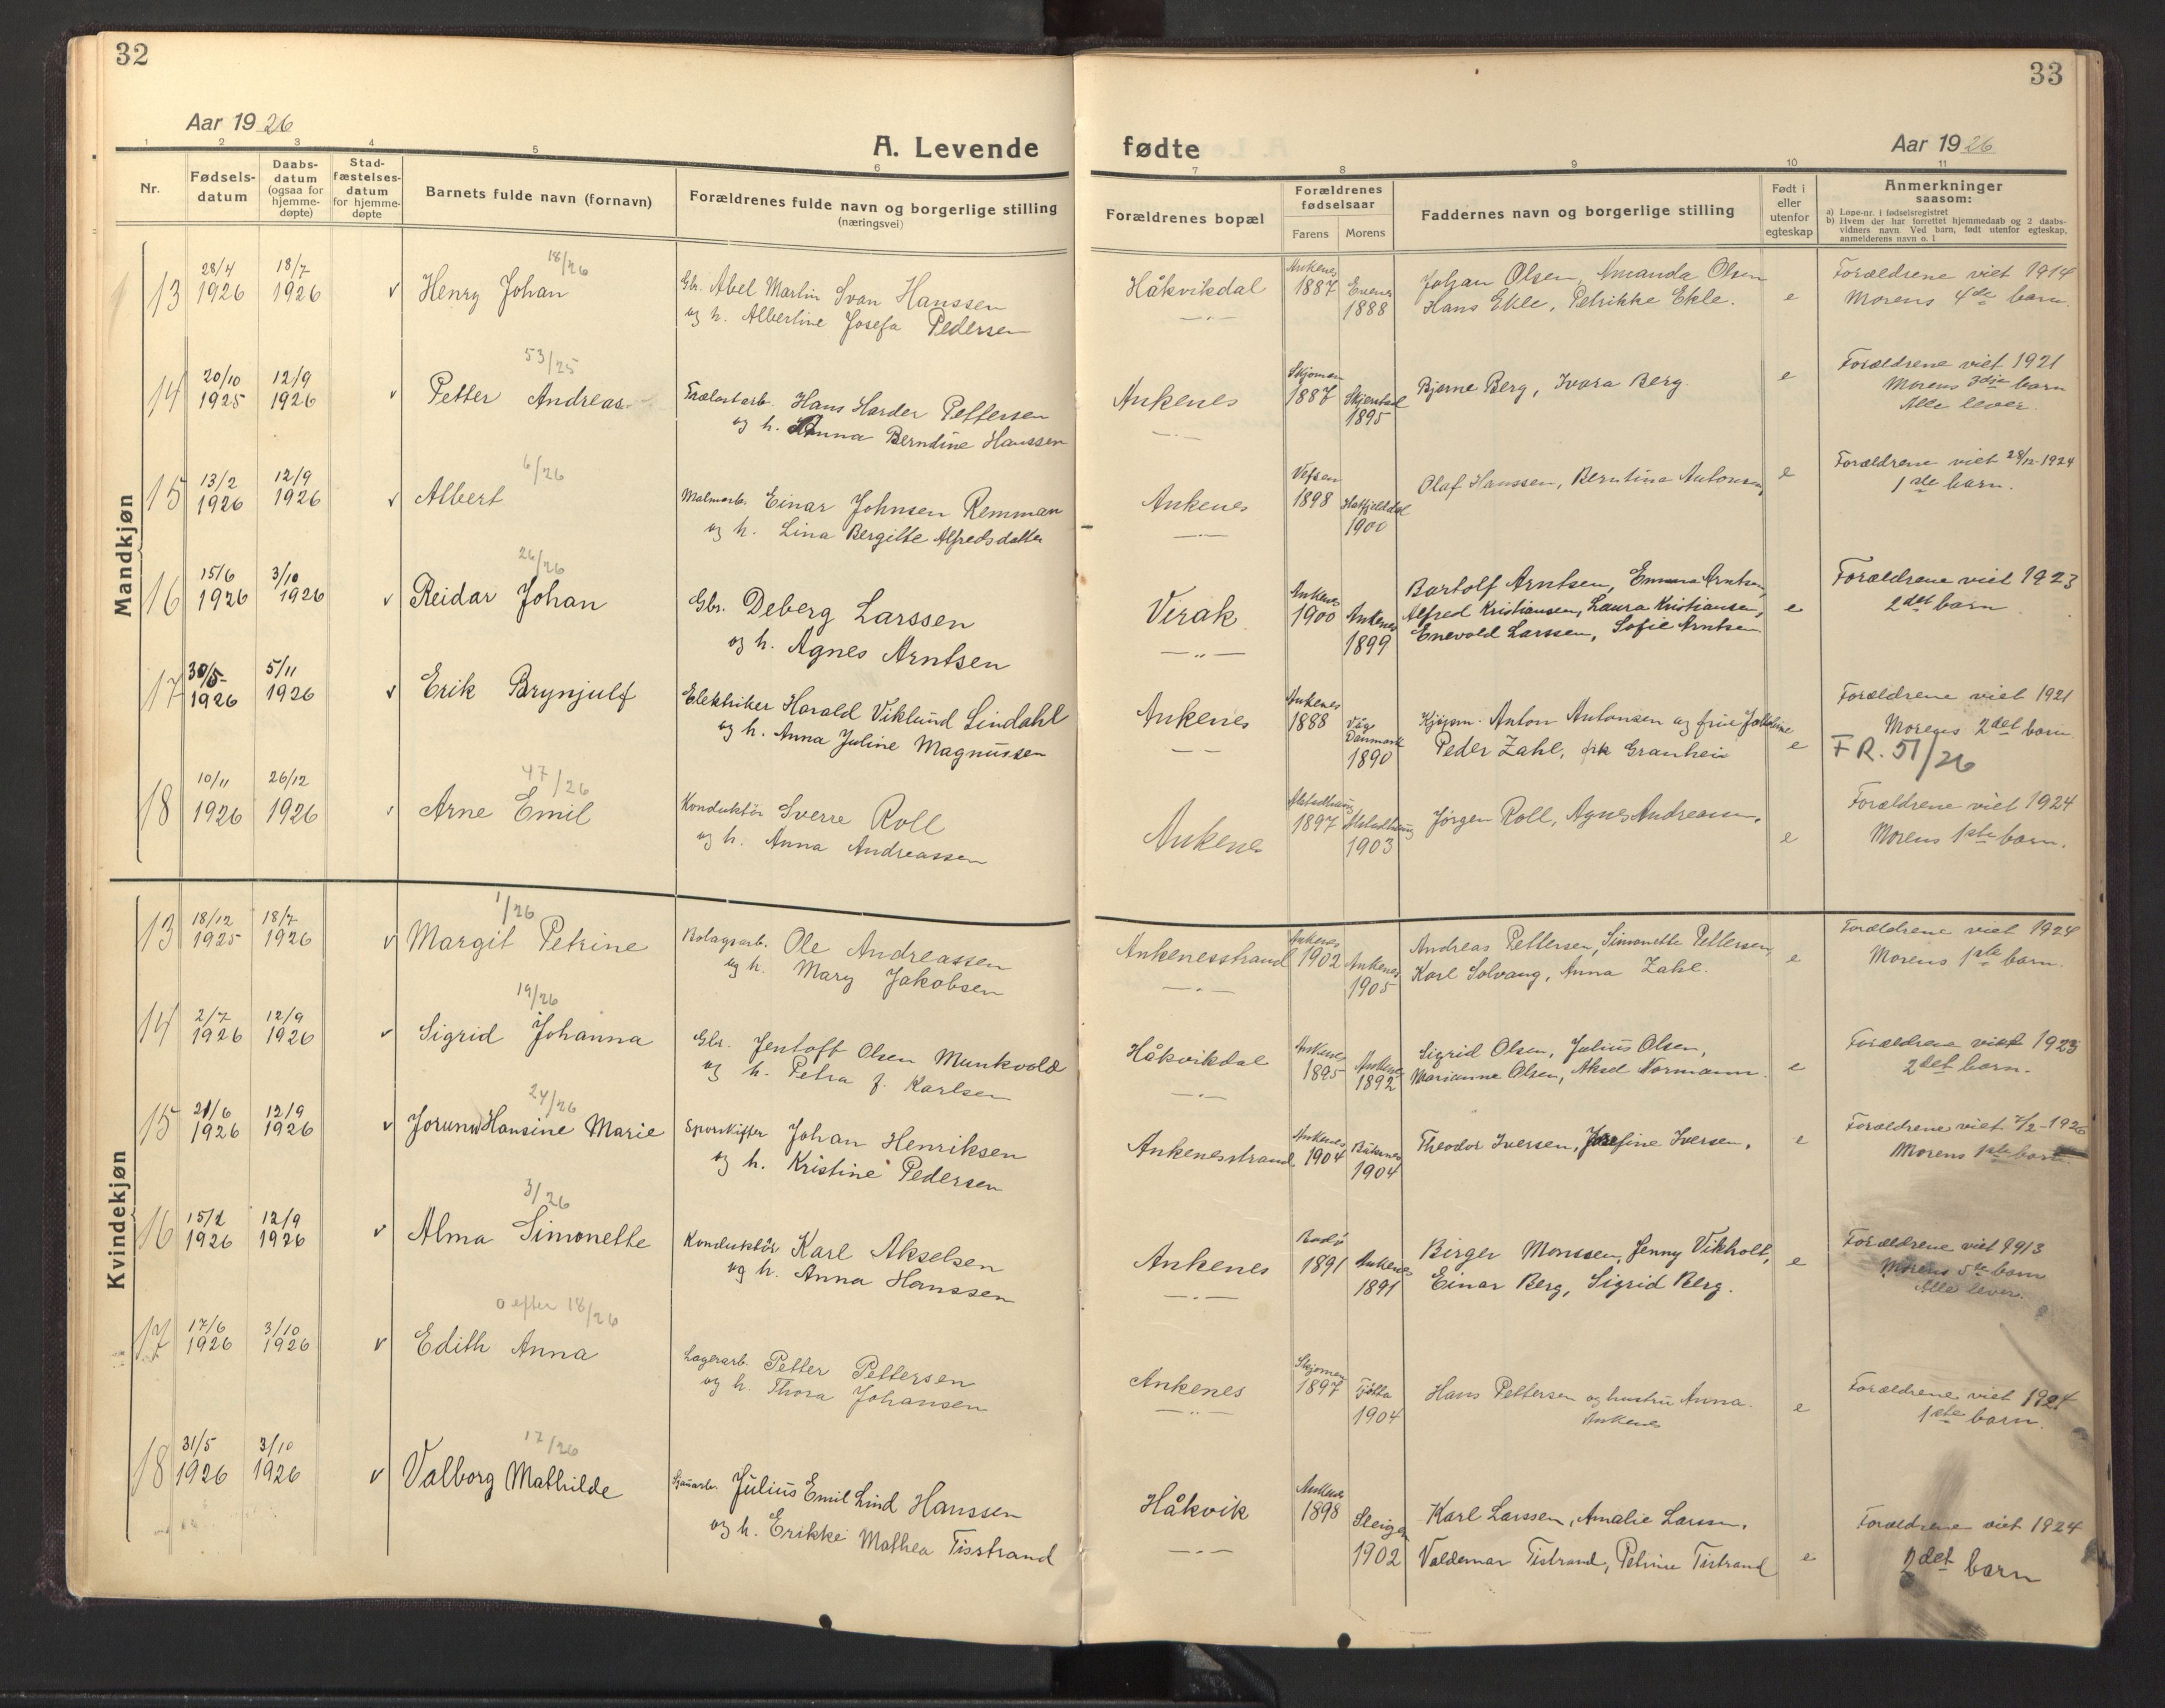 32
Aar 1926
A. Levende
1 2 3 4 5 6
Nr.
Fødsels-
datum
Daabs-
datum
(ogsaa for
hjemme-
døpte)
Stad-
fæstelses-
datum
for hjemme-
døpte
Barnets fulde navn (fornavn)
Forældrenes fulde navn og borgerlige stilling
(næringsvei)
Mandkjøn
13 28/4 1926 18/7 1926 v Henry Johan 18/26
Gbr. Abel Martin Svan Hanssen
og h. Albertine Josefa Pedersen
14 20/10 1925 12/9 1926 v Petter Andreas 53/25
Trælastarb. Hans Harder Pettersen
og h. Anna Berndine Hanssen
15 13/2 1926 12/9 1926 v Albert 6/26
Malmarb. Einar Johnsen Remman
og h. Lina Bergitte Alfredsdatter
16 15/6 1926 3/10 1926 v Reidar Johan 26/26
Gbr. Deberg Larssen
og h. Agnes Arntsen
17 30/5 1926 5/11 1926 v Erik Brynjulf
Elektriker Harald Viklund Lindahl
og h. Anna Juline Magnussen
18 10/11 1926 26/12 1926 v Arne Emil 47/26
Konduktör Sverre Roll
og h. Anna Andreassen
Kvindekjøn
13 18/12 1925 18/7 1926 v Margit Petrine 1/26
Bolagsarb. Ole Andreassen
og h. Mary Jakobsen
14 2/7 1926 12/9 1926 v Sigrid Johanna 19/26
Gbr. Jentoft Olsen Munkvold
og h. Petra f. Karlsen
15 21/6 1926 12/9 1926 v Jorunn Hansine Marie 24/26
Sporskifter Johan Henriksen
og h. Kristine Pedersen
16 15/2 1926 12/9 1926 v Alma Simonette 3/26
Konduktör Karl Akselsen
og h. Anna Hanssen
17 17/6 1926 3/10 1926 v Edith Anna 0 efter 18/26
Lagerarb. Petter Pettersen
og h. Thora Johansen
18 31/5 1926 3/10 1926 v Valborg Mathilde 17/26
Julius Emil Lind Hanssen
og h. Erikke Mathea Tisstrand
33
fødte
Aar 1926
7 8 9 10 11
Forældrenes bopæl
Forældrenes
fødselsaar
Farens Morens
Faddernes navn og borgerlige stilling
Født i
eller
utenfor
egteskap
Anmerkninger
saasom:
a) Løpe-nr. i fødselsregistret
b) Hvem der har forrettet hjemmedaab og 2 daabs-
vidners navn. Ved barn, født utenfor egteskap,
anmelderens navn o. l
Håkvikdal Ankenes 1887 Evenes 1888
Johan Olsen, Amanda Olsen
Hans Ekle, Petrikke Ekle. e
Forældrene viet 1914
Morens 4de barn.
Ankenes Skjomen 1887 Skjerstad 1895
Bjarne Berg, Ivara Berg. e
Forældrene viet 1921
Morens 3dje barn
Alle lever.
Ankenes Vefsen 1898 Hatfjelddal 1900
Olaf Hanssen, Berntina Antonsen e
Forældrene viet 28/12-1924
1ste barn.
Verak Ankenes 1900 Ankenes 1899
Bartolf Arntsen, Emma Arntsen,
Alfred Kristiansen, Laura Kristiansen, e
Enevold Larssen, Sofie Arntsen
Forældrene viet 1923
2det barn
Ankenes Ankenes 1888 Danmark 1890
Kjøpm. Anton Antonsen og frue
Peder Zahl, frk Granheim e
Forældrene viet 1921
Morens 2det barn.
FR. 51/26
Ankenes Alstadhaug 1897 Alstadhaug 1903
Jørgen Roll, Agnes Andreassen. e
Forældrene viet 1924
Morens 1ste barn.
Ankenesstrand Ankenes 1902 Ankenes 1905
Andreas Pettersen, Simonette Pettersen,
Karl Solvang, Anna Zahl. e
Forældrene viet 1924
Morens 1ste barn.
Håkvikdal Ankenes 1895 Ankenes 1892
Sigrid Olsen, Julius Olsen,
Marianne Olsen, Aksel Normann. e
Forældrene viet 1923
2det barn.
Ankenesstrand Ankenes 1904 1904
Theodor Iversen, Josefine Iversen. e
Forældrene viet 7/2-1926
Morens 1ste barn.
Ankenes Bodø 1891 Ankenes 1891
Birger Monssen, Jenny Vikholt, e
Einar Berg, Sigrid Berg.
Forældrene viet 1913
Morens 5te barn
Alle lever.
Ankenes Skjomen 1897 Tjøtta 1904
Hans Pettersen og hustru Anna.
Ankenes e
Forældrene viet 1924
1ste barn.
Håkvik Ankenes 1898 Steigen 1902
Karl Larssen, Amalie Larssen,
Valdemar Tistrand, Petrine Tistrand e
Forældrene viet 1924
2det barn